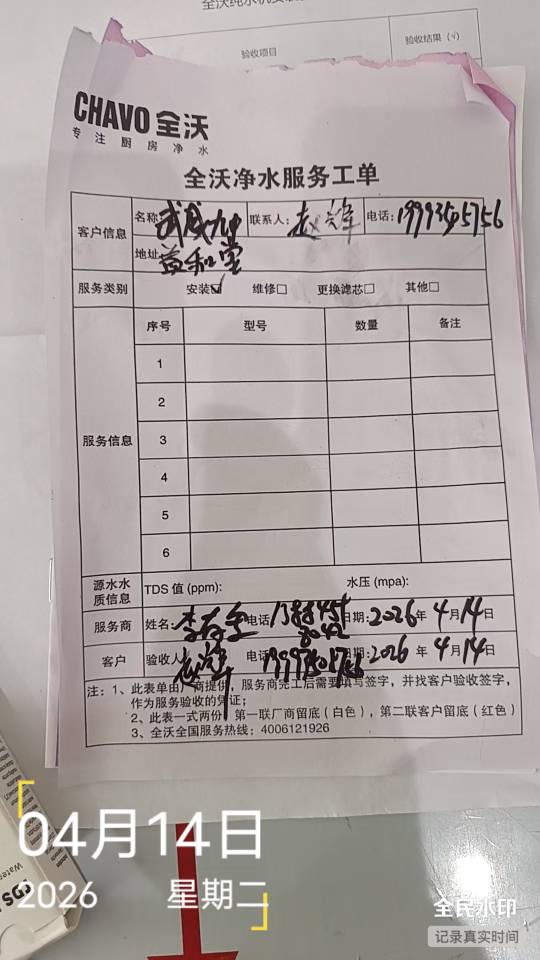 验收项目
验收结果（√）
CHAVO 全沃
专注厨房净水
全沃净水服务工单
客户信息
名称：武威
联系人：赵锋
电话：
地址 益和堂
服务类别
安装☑ 维修□ 更换滤芯□ 其他□
服务信息
序号 型号 数量 备注
1
2
3
4
5
6
源水水质信息
TDS 值 (ppm)： 水压 (mpa)：
服务商 姓名： 电话 日期：2026年 4月14日
客户 验收人 赵锋 电话 日期：2026年 4月14日
注：1、此表单由厂商提供，服务商完工后需要填写签字，并找客户验收签字，
作为服务验收的凭证；
2、此表一式两份，第一联厂商留底（白色），第二联客户留底（红色）
3、全沃全国服务热线：4006121926
04月14日
2026 星期二
全民水印
记录真实时间